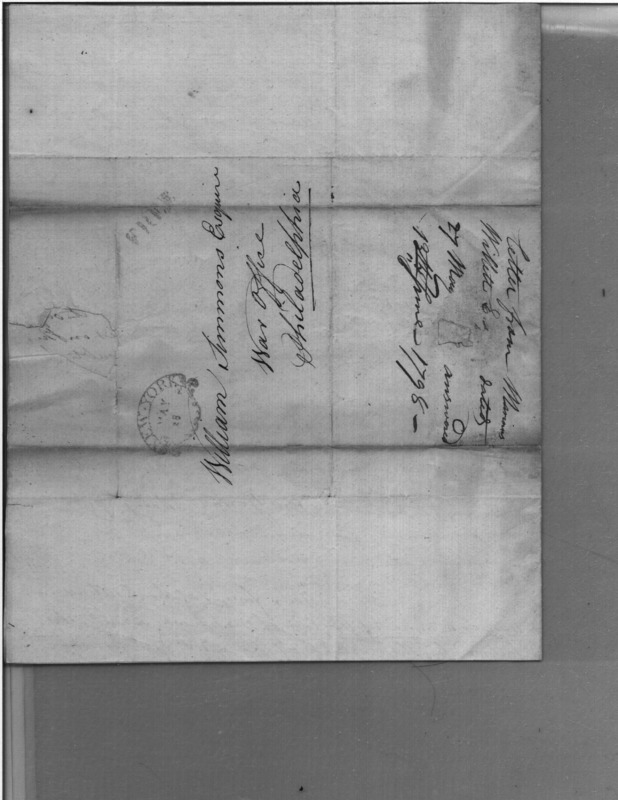 FREE
NEW-YORK
MAY
28
William Simmons Esquire
War Office
Philadelphia
Letter from Marinus
Willett Esq
dated
27 May
answered
June 1798 —